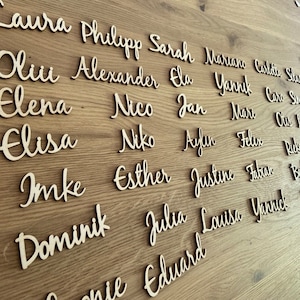 Laura Philipp Sarah Mariano Carlotta
Olili Alexander Ela Yannik
Elena Nico Jan Marc
Elisa Niko Aylin Felix
Imke Esther Justine Fabian
Dominik Julia Louisa Yannick
Eduard